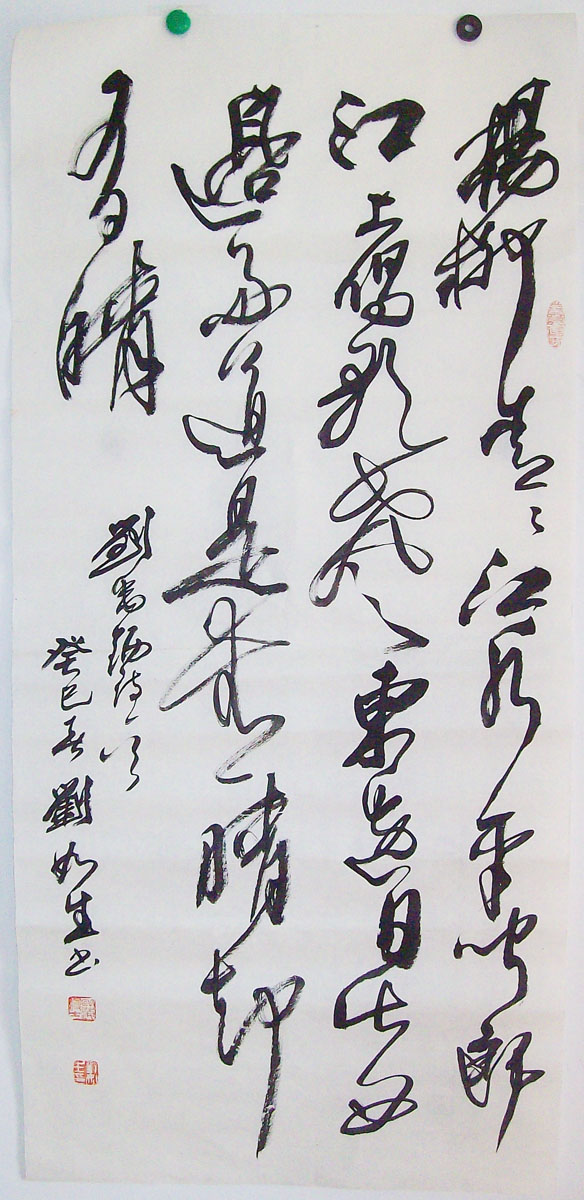 楊柳青々江水平聞郎
江上唱歌聲東邊日出西
邊雨道是無晴却
有晴
劉禹錫詩一首
癸巳春劉如生书